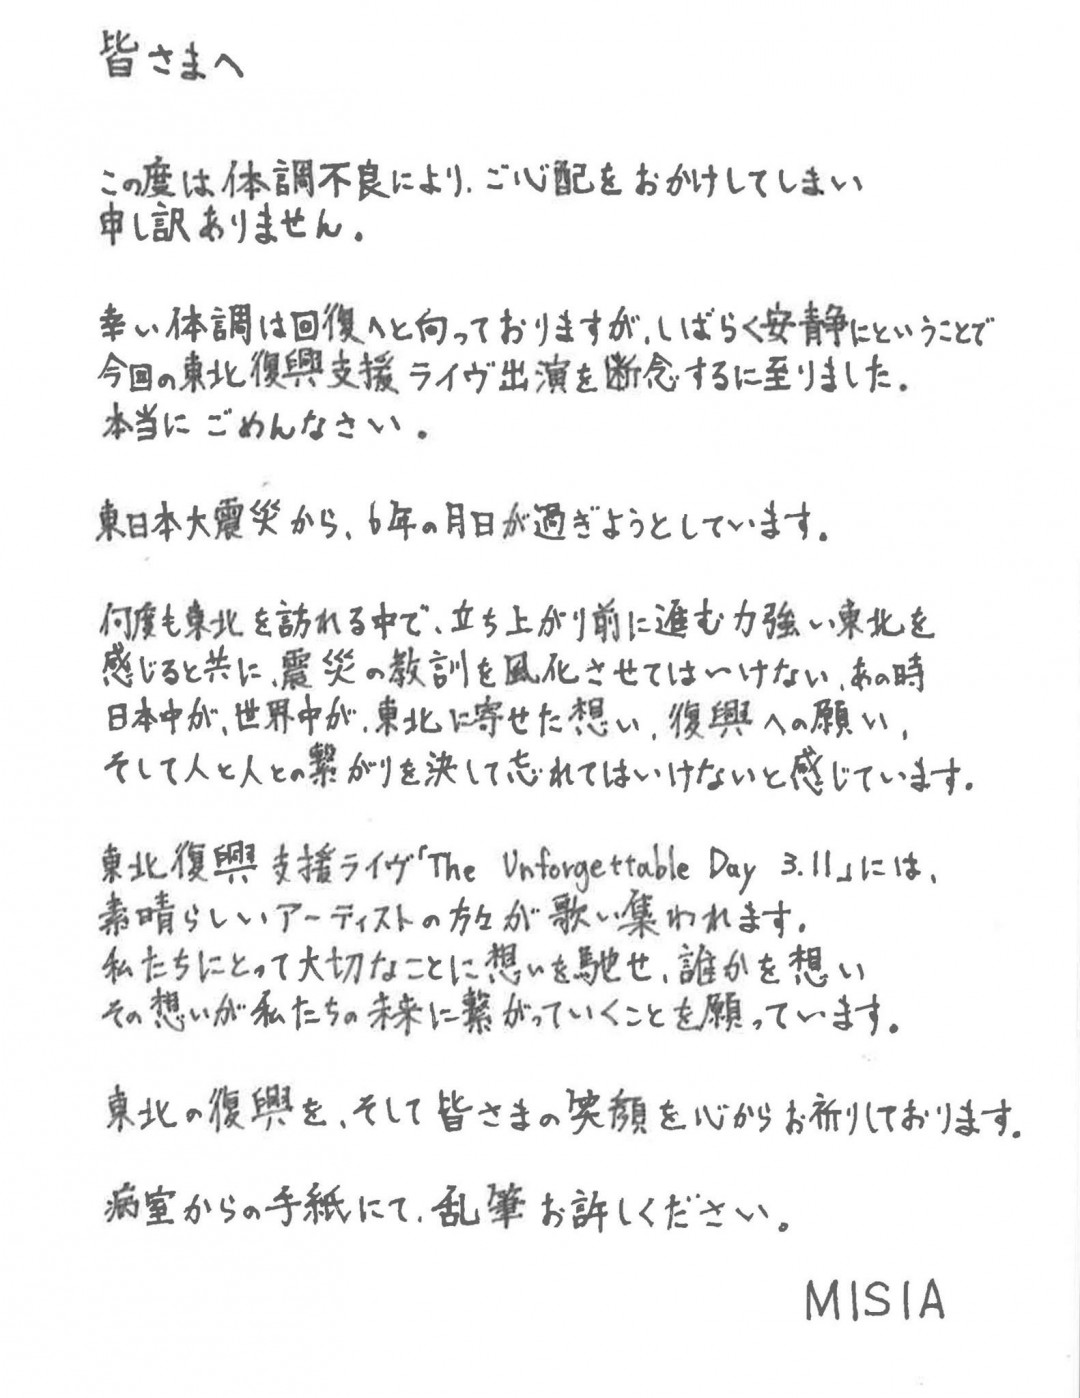 皆さまへ
この度は体調不良により、ご心配をおかけしてしまい
申し訳ありません。
幸い体調は回復へと向っておりますが、しばらく安静にということで
今回の東北復興支援ライヴ出演を断念するに至りました。
本当にごめんなさい。
東日本大震災から、6年の月日が過ぎようとしています。
何度も東北を訪れる中で、立ち上がり前に進む力強い東北を
感じると共に、震災の教訓を風化させてはいけない、あの時
日本中が、世界中が、東北に寄せた想い、復興への願い、
そして人と人との繋がりを決して忘れてはいけないと感じています。
東北復興支援ライヴ「The Unforgettable Day 3.11」には、
素晴らしいアーティストの方々が歌い集われます。
私たちにとって大切なことに想いを馳せ、誰かを想い
その想いが私たちの未来に繋がっていくことを願っています。
東北の復興を、そして皆さまの笑顔を心からお祈りしております。
病室からの手紙にて、乱筆お許しください。
MISIA